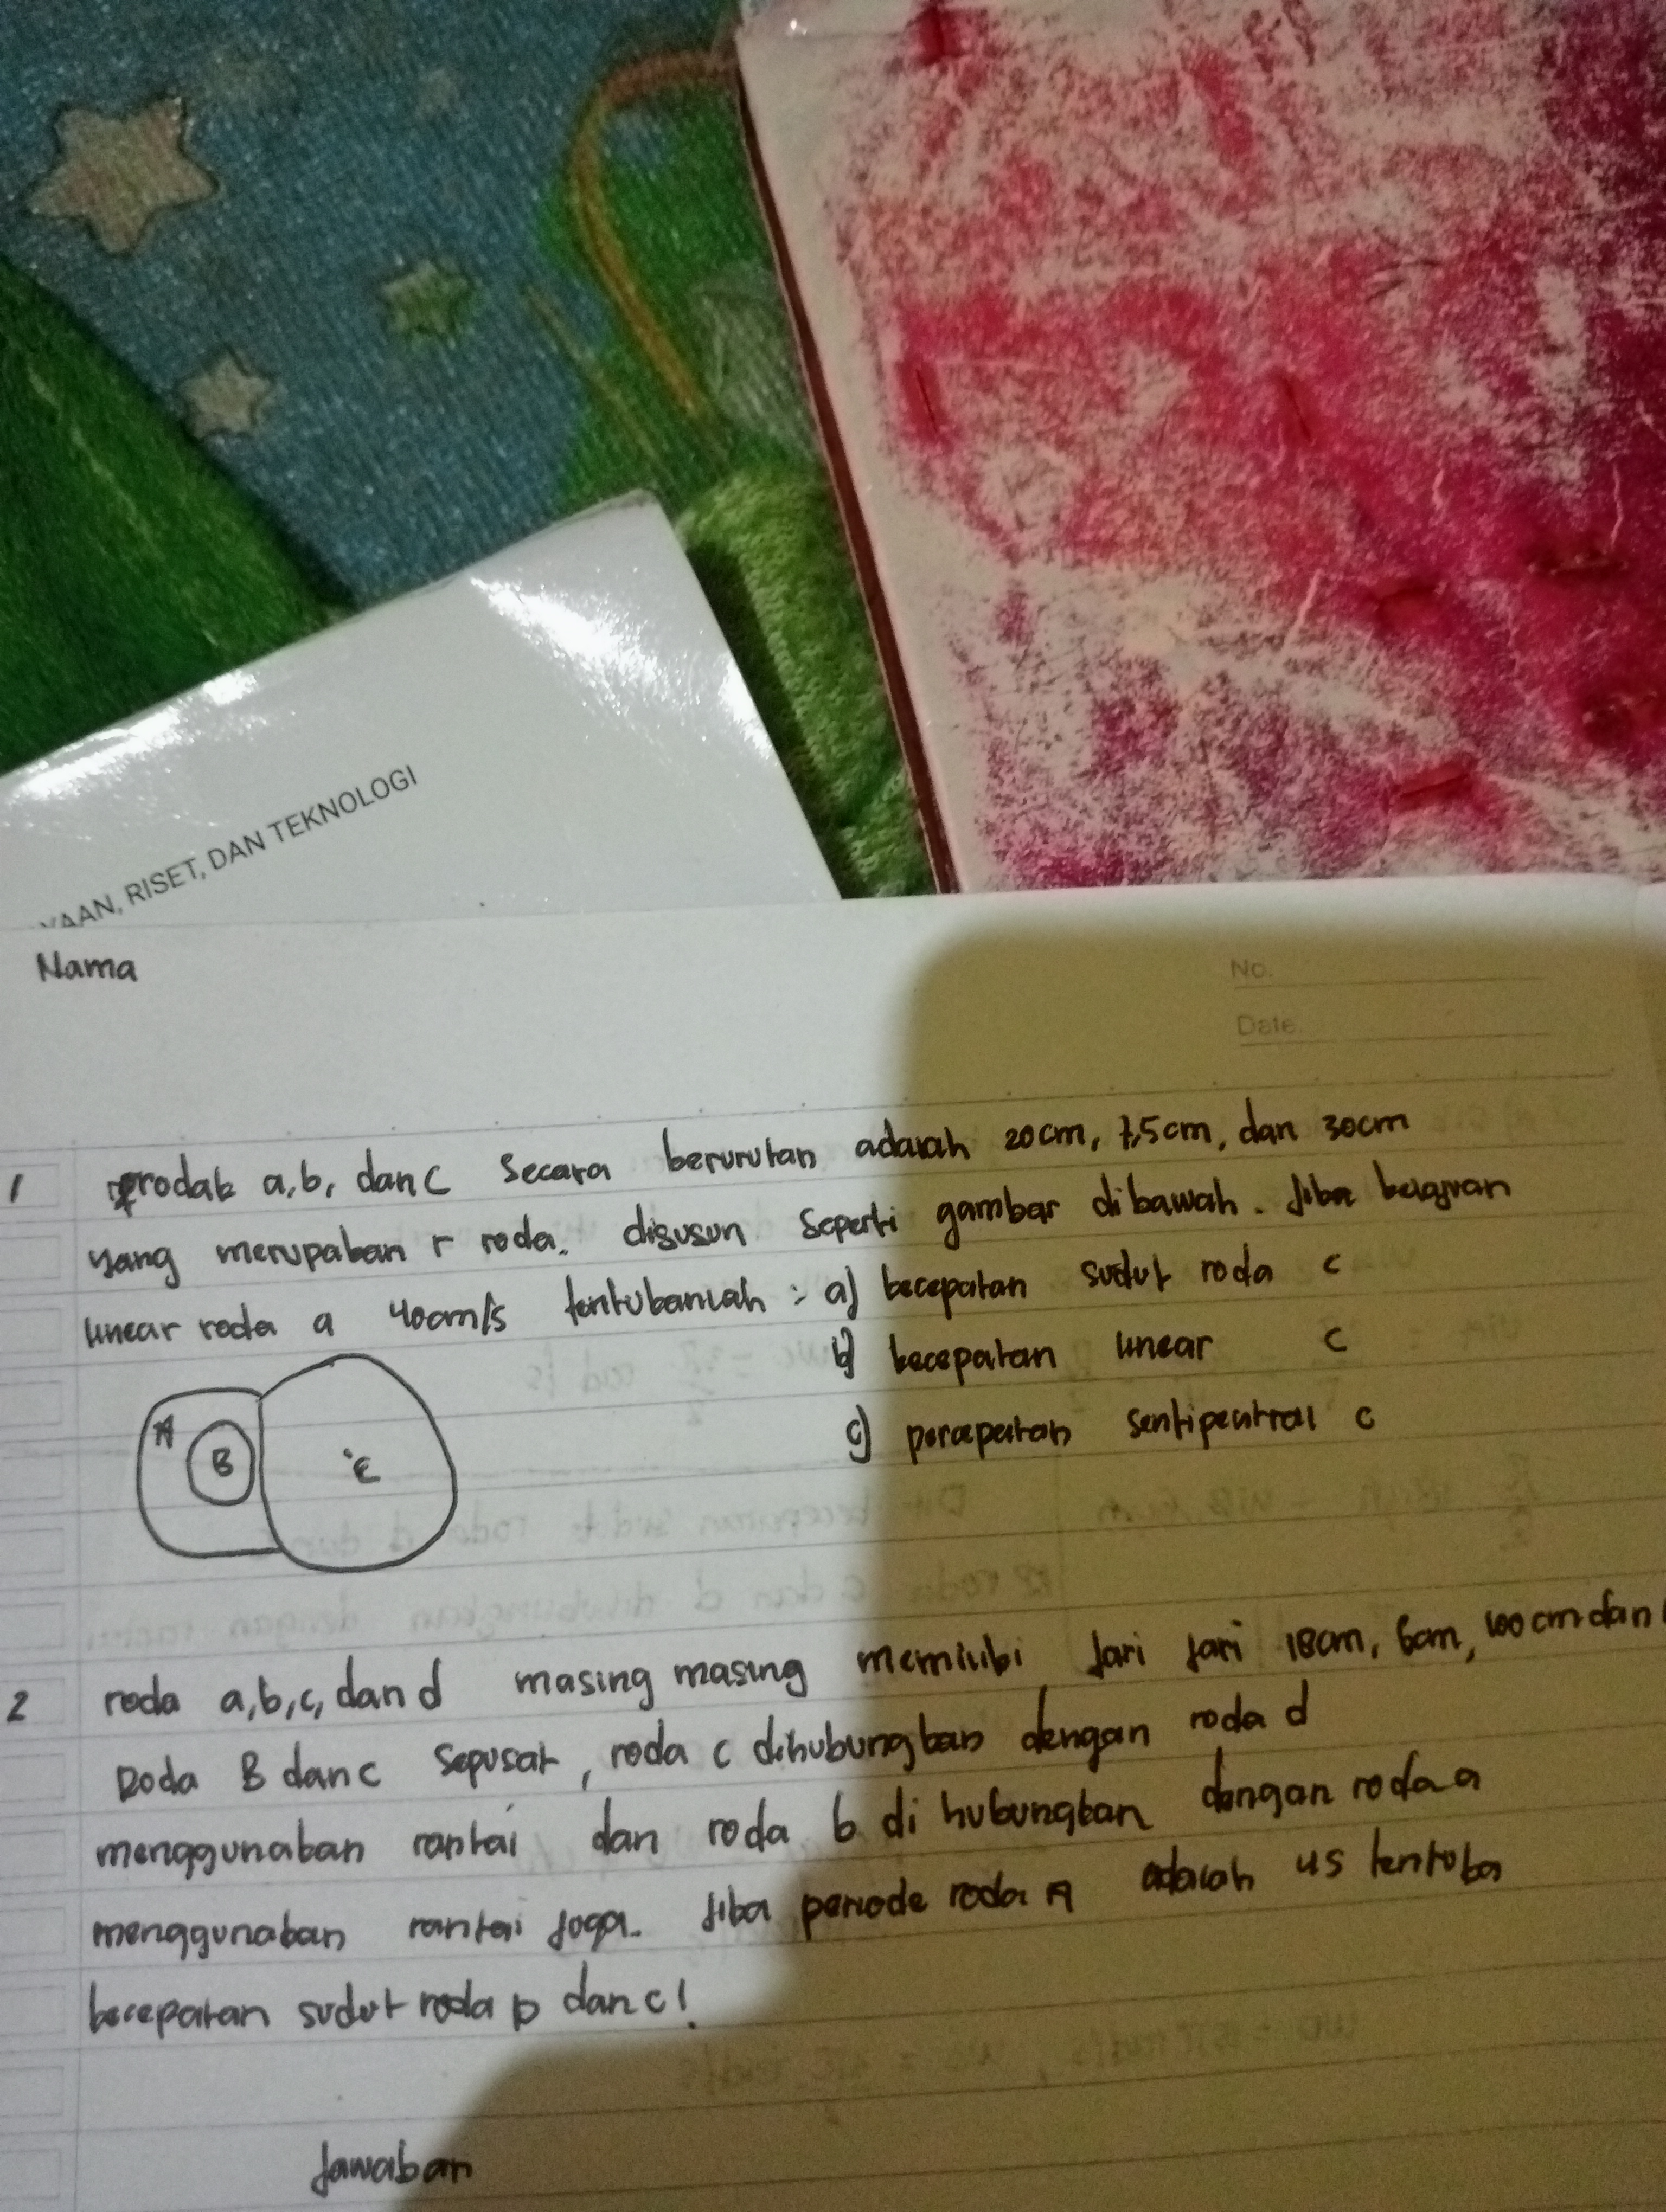 YAAN, RISET, DAN TEKNOLOGI
Nama
No.
Date.
1 rodab a,b, dan c secara berurutan adalah 20cm, 7,5cm, dan 30cm
yang merupaban r roda. disusun seperti gambar dibawah. Jiba belajuan
linear roda a 40cm/s tentubanlah : a) becepatan sudut roda c
b) becepatan linear c
c) percepatan sentipeutral c
A
B
C
2 roda a,b,c, dan d masing masing memilibi jari jari 18cm, 6cm, 100cm dan
Roda B dan c sepusat, roda c dihubungban dengan roda d
menggunaban rantai dan roda b di hubungban dengan roda a
menggunaban rantai juga. Jiba periode roda A adalah 4s tentuba
becepatan sudut roda D dan c!
Jawaban